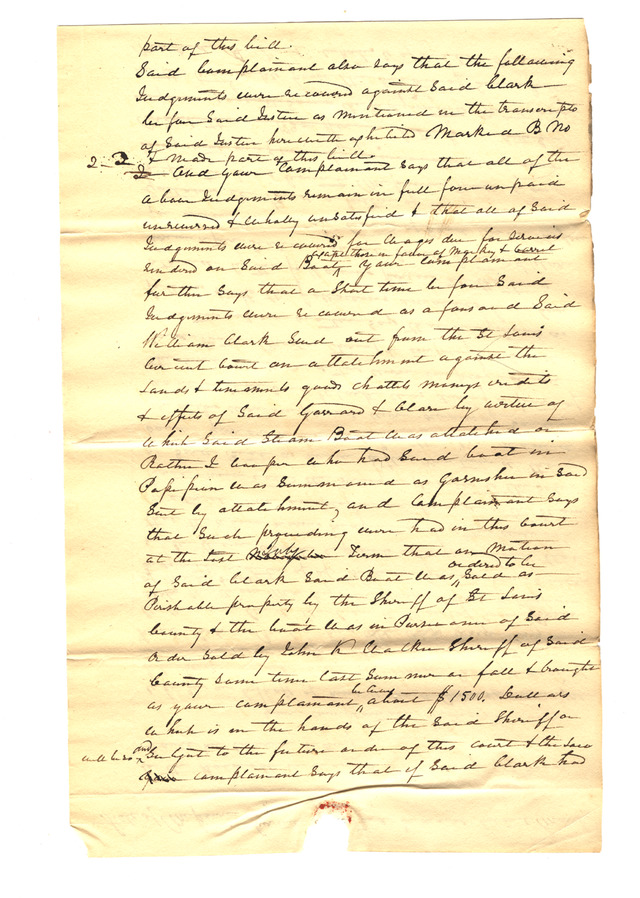 part of this bill.
Said Complainant also says that the following
Judgments were recovered against Said Clark
before Said Justice as mentioned in the transcripts
of Said Justice herewith exhibited Marked B No
2 & Made part of this bill.
And your Complainant Says that all of the
above Judgments remain in full force unpaid
unreversed & wholly unsatisfied & that all of Said
Judgments were recovered for wages due for Services
except those in favor of Markey &
rendered on Said Boat, Your Complainant
further Says that a Short time before Said
Judgments were recovered as aforesaid Said
William Clark Sued out from the St Louis
Circuit Court an attatchment against the
Lands & tenements goods chattles moneys credits
& effects of Said Garrard & Clark by virtue of
which Said Steam Boat was attatched or
Rather J Cooper who had Said boat in
Possession was Summoned as Garnishee in Said
Suit by attatchment, and Complainant Says
that Such proceeding were had in this Court
at the last July Term that on Motion
ordered to be
of Said Clark Said Boat was Sold as
Perishable property by the Sheriff of St Louis
County & the boat was in Pursuance of Said
Order Sold by John K Walker Sheriff of Said
County Some time last Summer or fall & brought
believes
as your complainant about $1500. Dollars
which is in the hands of the Said Sheriff or
Subject to the future order of this court & the Law
complainant Says that if Said Clark had